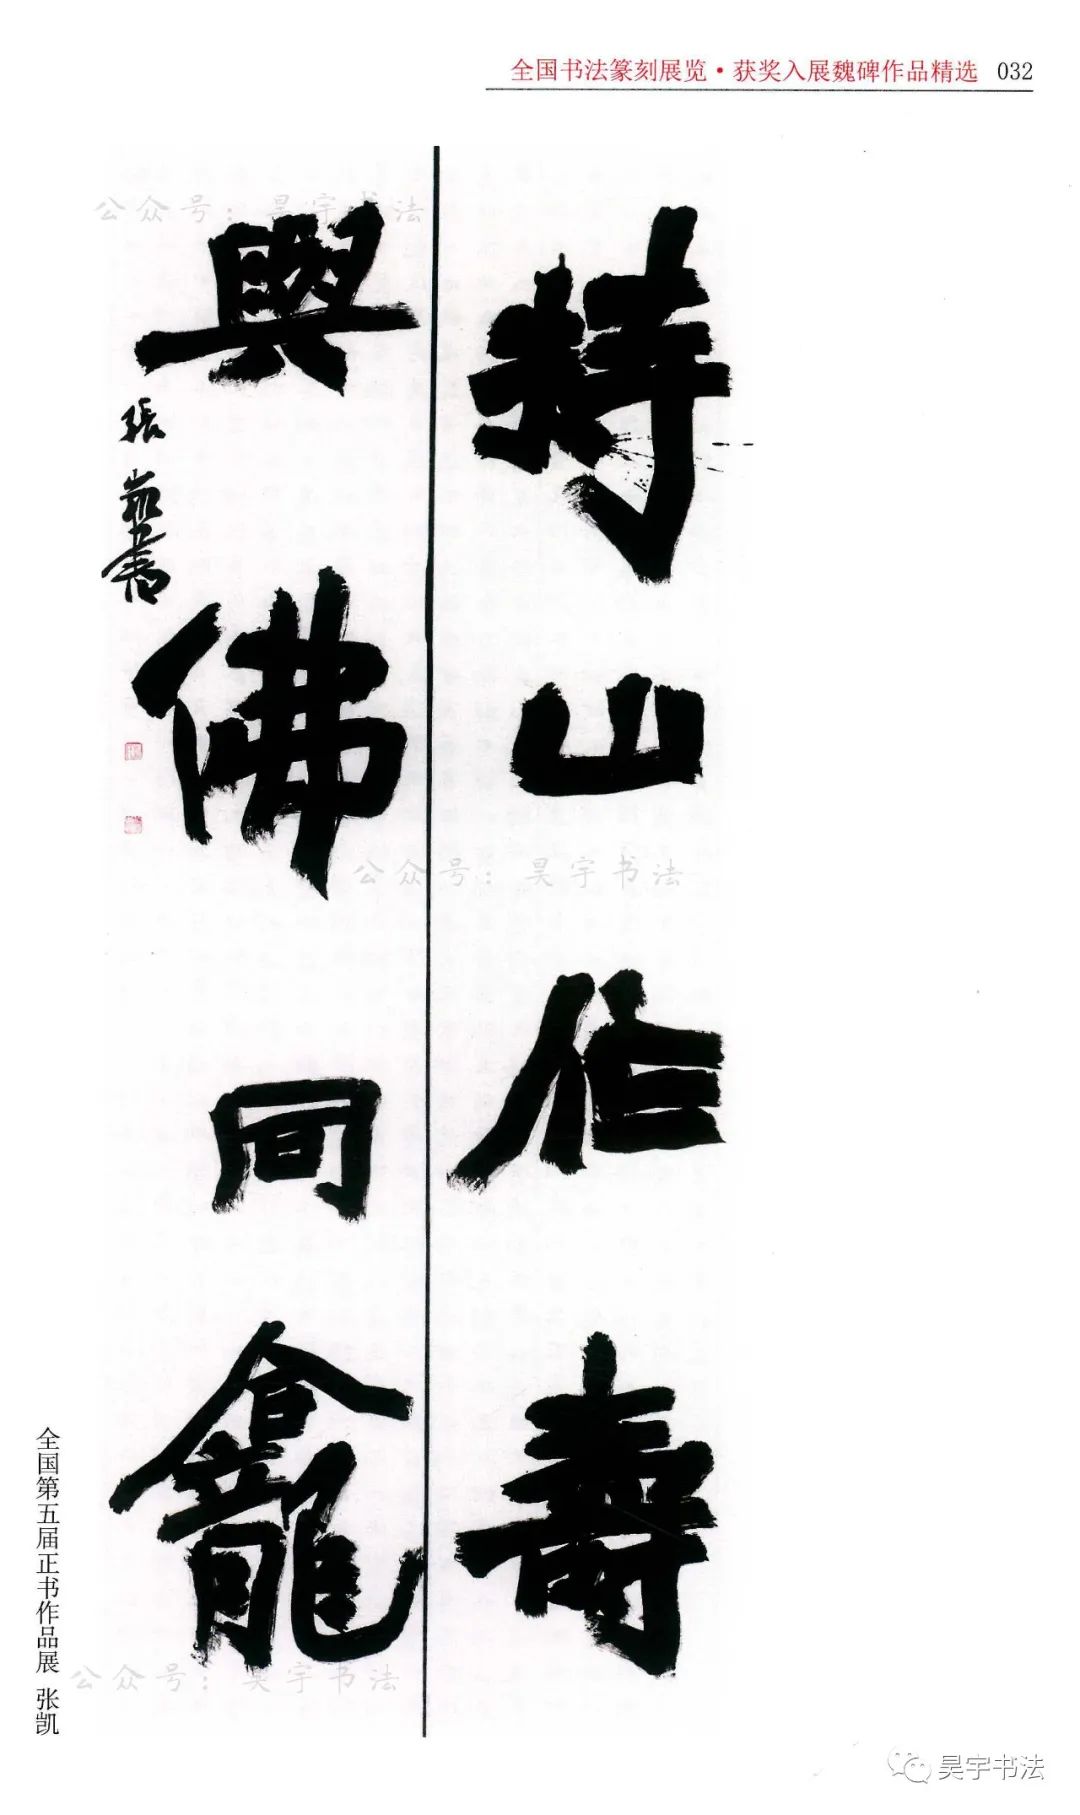 全国书法篆刻展览·获奖入展魏碑作品精选 032
持山作壽
與佛同龕
張凱書
公众号：昊宇书法
公众号：昊宇书法
公众号：昊宇书法
全国第五届正书作品展 张凯
昊宇书法